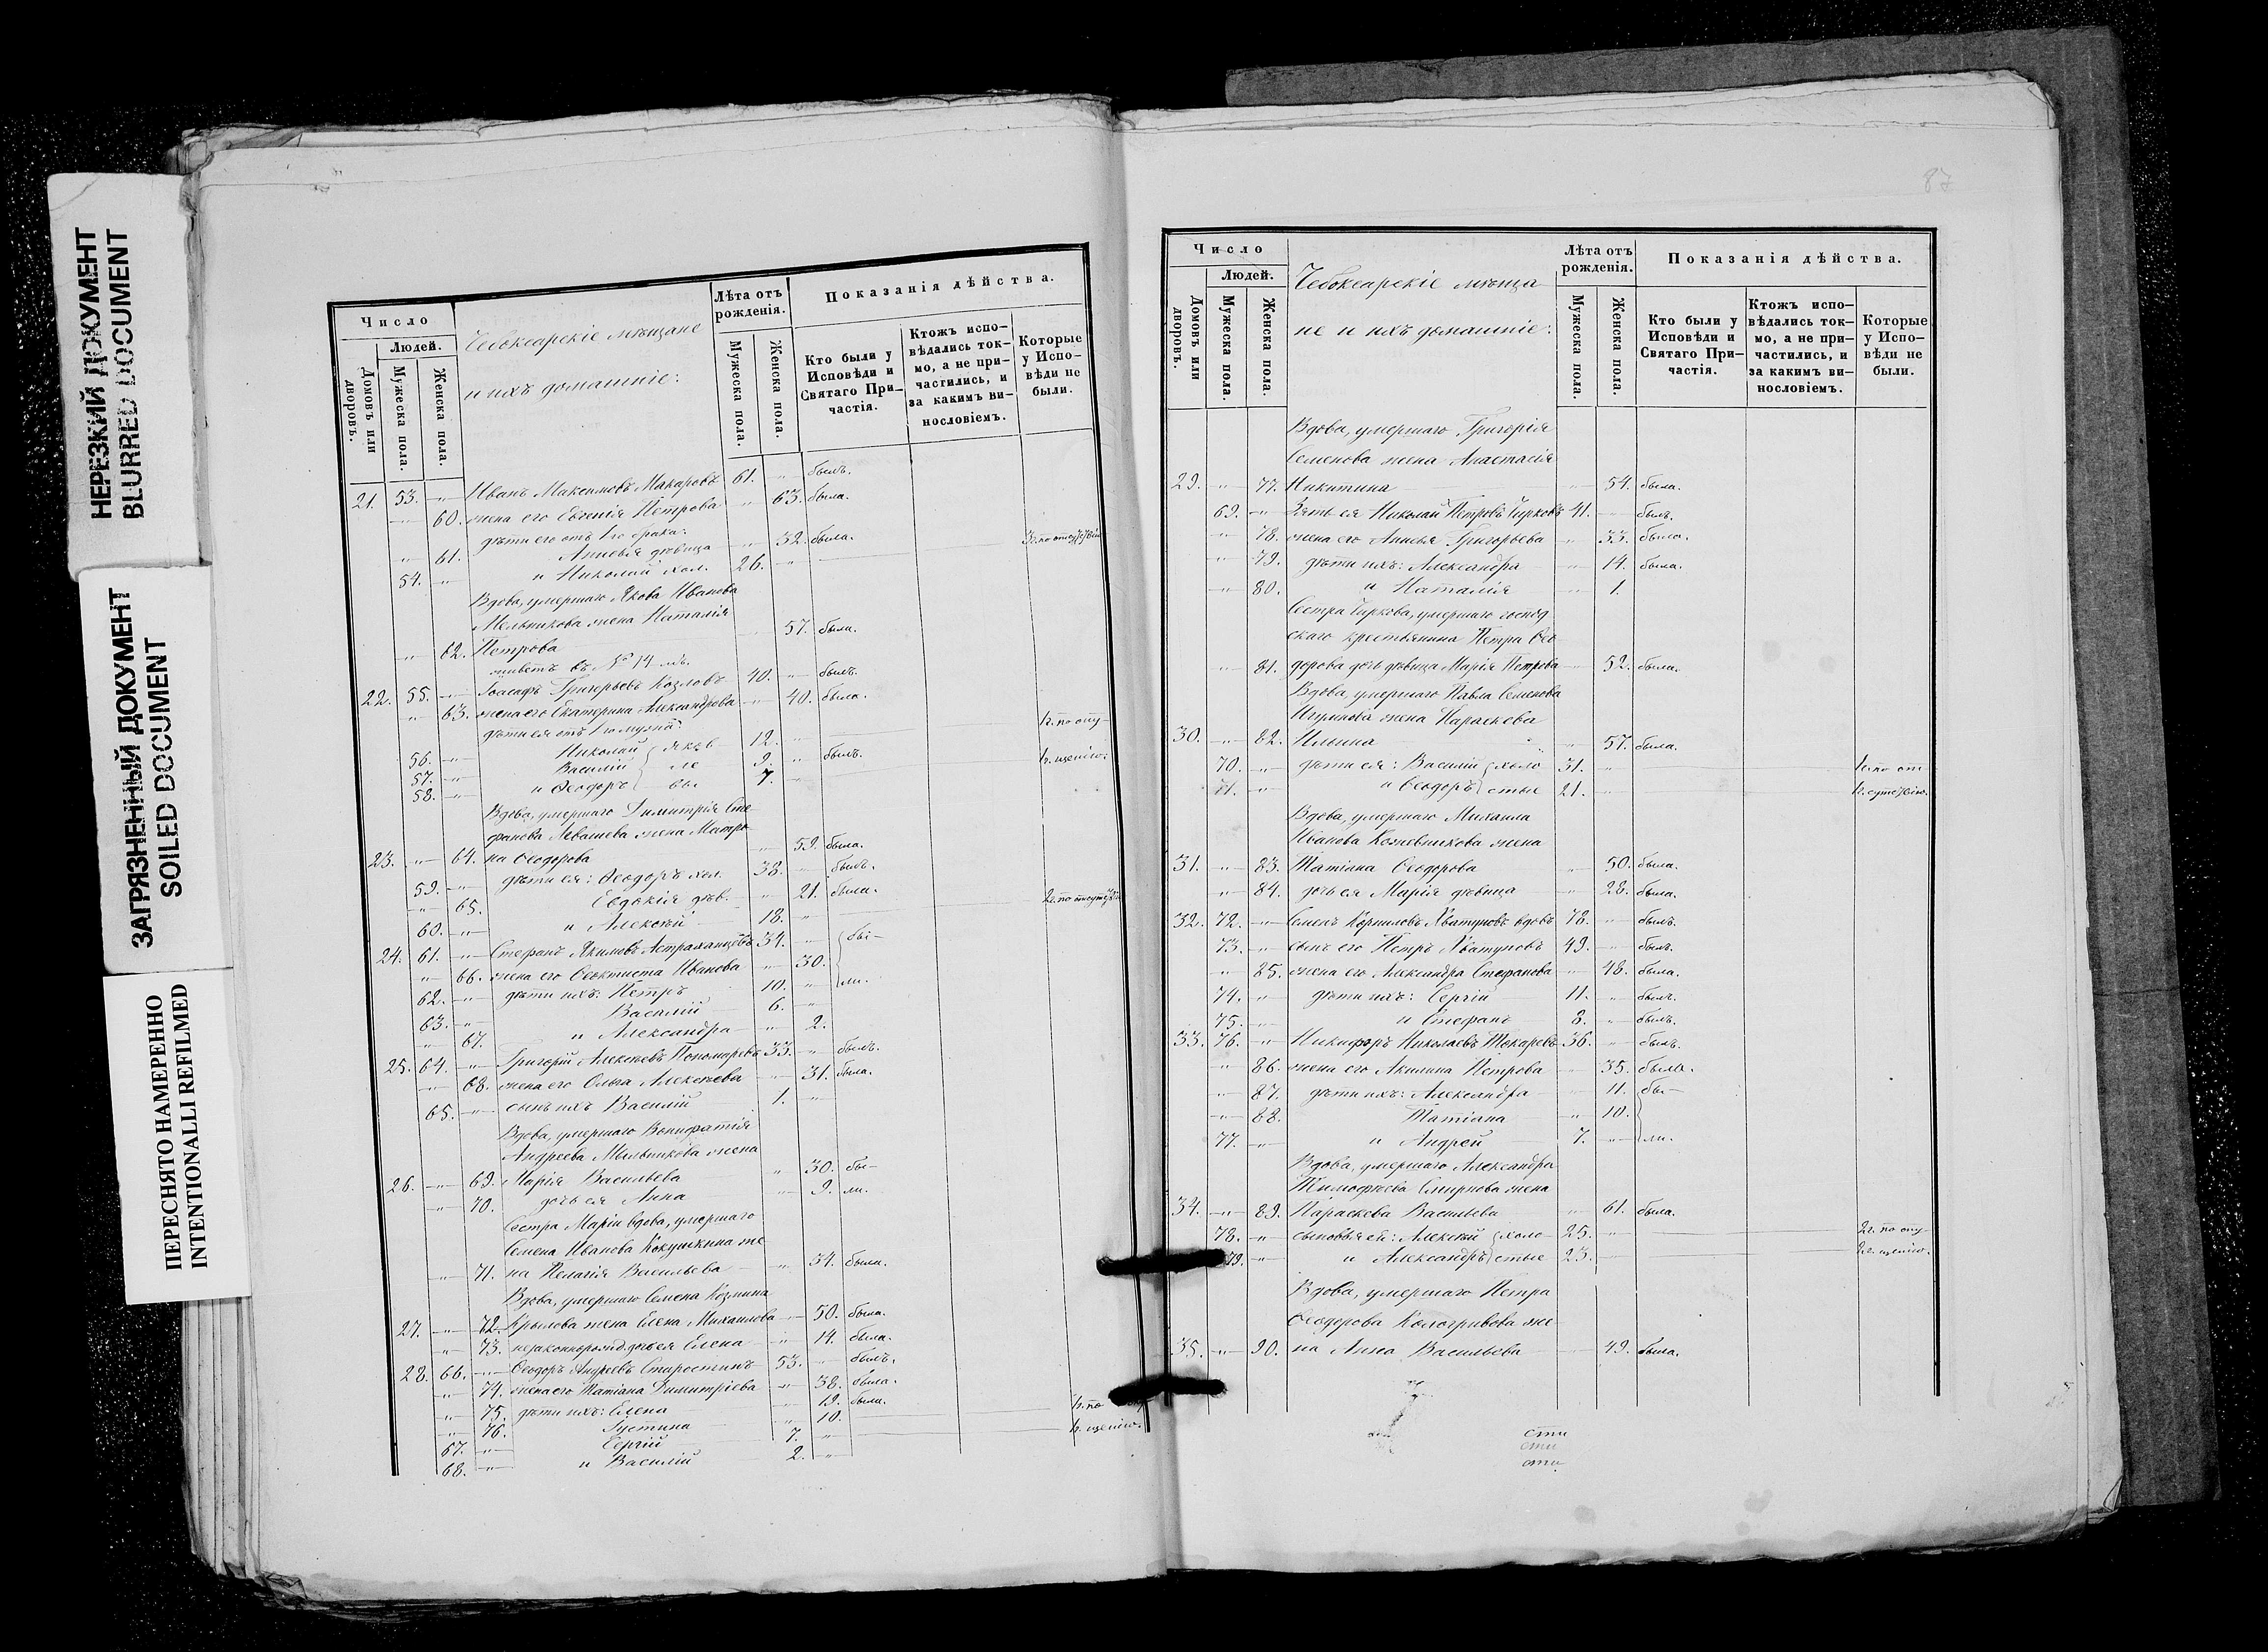 НЕРЕЗКИЙ ДОКУМЕНТ
BLURRED DOCUMENT
ЗАГРЯЗНЕННЫЙ ДОКУМЕНТ
SOILED DOCUMENT
ПЕРЕСНЯТО НАМЕРЕННО
INTENTIONALLI REFILMED
Число
Людей.
Домовъ или дворовъ.
Мужеска пола.
Женска пола.
Чебоксарскіе мѣщане
и ихъ домашніе:
Лѣта отъ рожденія.
Мужеска пола.
Женска пола.
Показанія дѣйства.
Кто были у Исповѣди и Святаго Причастія.
Ктожъ исповѣдались токмо, а не причастились, и за какимъ винословіемъ.
Которые у Исповѣди не были.
21. 53. „ Иванъ Максимовъ Макаровъ 61. „ былъ.
„ 60. жена его Евгенія Петрова „ 63. была.
дѣти его отъ 1го брака:
„ 61. Анисья дѣвица „ 32. была.
54. „ и Николай хол. 26. „
Вдова, умершаго Якова Иванова
Мельникова жена Наталія
„ 62. Петрова 57. была.
живетъ въ № 14 мъ.
22. 55. „ Іоасафъ Григорьевъ Козловъ 40. „ былъ.
„ 63. жена его Екатерина Александрова „ 40. была.
дѣти ея отъ 1го мужа:
56. „ Николай 12. „ 1г. по опу-
57. „ Василій 9. „ былъ.
58. „ и Ѳеодоръ 7. „ 1г. щенію.
Вдова, умершаго Димитрія Сте
фанова Левашева жена Матро
23. „ 64. на Ѳеодорова „ 59. была.
59. „ дѣти ея: Ѳеодоръ хол. 38. „ былъ.
„ 65. Евдокія дѣв. „ 21. была.
60. „ и Алексѣй 18. „
24. 61. „ Стефанъ Якимовъ Астраханцевъ 34. „ бы-
„ 66. жена его Ѳеоктиста Иванова „ 30.
62. „ дѣти ихъ: Петръ 10. „ ли.
63. „ Василій 6. „
„ 67. и Александра „ 2.
25. 64. „ Григорій Алексѣевъ Пономаревъ 33. „ былъ.
„ 68. жена его Ольга Алексѣева „ 31. была.
65. „ сынъ ихъ Василій 1. „
Вдова, умершаго Вонифатія
Андреева Мыльникова жена
26. „ 69. Марія Васильева „ 30. бы-
„ 70. дочь ея Анна „ 9. ли.
Сестра Маріи вдова, умершаго
Семена Иванова Кокушкина же
„ 71. на Пелагія Васильева „ 54. была.
Вдова, умершаго Семена Козмина
27. „ 72. Крылова жена Елена Михаилова „ 50. была.
„ 73. незаконнорожд. дочь ея Елена „ 14. была.
28. 66. „ Ѳеодоръ Андреевъ Старостинъ 53. „ былъ.
„ 74. жена его Татіана Димитріева „ 38. была.
„ 75. дѣти ихъ: Елена „ 19. была.
„ 76. Іустина „ 10. 1г. по
67. „ Сергій 7. „ 1г. щенію.
68. „ и Василій 2. „
87
Число
Людей.
Домовъ или дворовъ.
Мужеска пола.
Женска пола.
Чебоксарскіе мѣща
не и ихъ домашніе:
Лѣта отъ рожденія.
Мужеска пола.
Женска пола.
Показанія дѣйства.
Кто были у Исповѣди и Святаго Причастія.
Ктожъ исповѣдались токмо, а не причастились, и за какимъ винословіемъ.
Которые у Исповѣди не были.
Вдова, умершаго Григорія
Семенова жена Анастасія
29. „ 77. Никитина „ 54. была.
69. „ Зять ея Николай Петровъ Чирковъ 41. „ былъ.
„ 78. жена его Анисья Григорьева „ 33. была.
„ 79. дѣти ихъ: Александра „ 14. была.
„ 80. и Наталія „ 1.
Сестра Чиркова, умершаго господ
скаго крестьянина Петра Ѳео
„ 81. дорова дочь дѣвица Марія Петрова „ 52. была.
Вдова, умершаго Павла Семенова
жена Параскева
30. „ 82. Ильина „ 57. была.
70. „ дѣти ея: Василій холо 31. „ 1г. по от
71. „ и Ѳеодоръ стые 21. „ 1г. сутствію.
Вдова, умершаго Михаила
Иванова Кожевникова жена
31. „ 83. Татіана Ѳеодорова „ 50. была.
„ 84. дочь ея Марія дѣвица „ 28. была.
32. 72. „ Семенъ Корниловъ Хватуновъ вдовъ 78. „ былъ.
73. „ сынъ его Петръ Хватуновъ 49. „ былъ.
„ 85. жена его Александра Стефанова „ 48. была.
74. „ дѣти ихъ: Сергій 11. „ былъ.
75. „ и Стефанъ 8. „ былъ.
33. 76. „ Никифоръ Николаевъ Токаревъ 36. „ былъ.
„ 86. жена его Акилина Петрова „ 35. была.
„ 87. дѣти ихъ: Александра „ 11. бы-
„ 88. Татіана „ 10.
77. „ и Андрей 7. „ ли.
Вдова, умершаго Александра
Тимофеева Смирнова жена
34. „ 89. Параскева Васильева „ 61. была.
78. „ сыновья ея: Алексѣй холо- 25. „ 2г. по опу-
79. „ и Александръ стые 23. „ 2г. щенію.
Вдова, умершаго Петра
Ѳеодорова Кологривова же
35. „ 90. на Анна Васильева „ 49. была.
сти
сти
сти